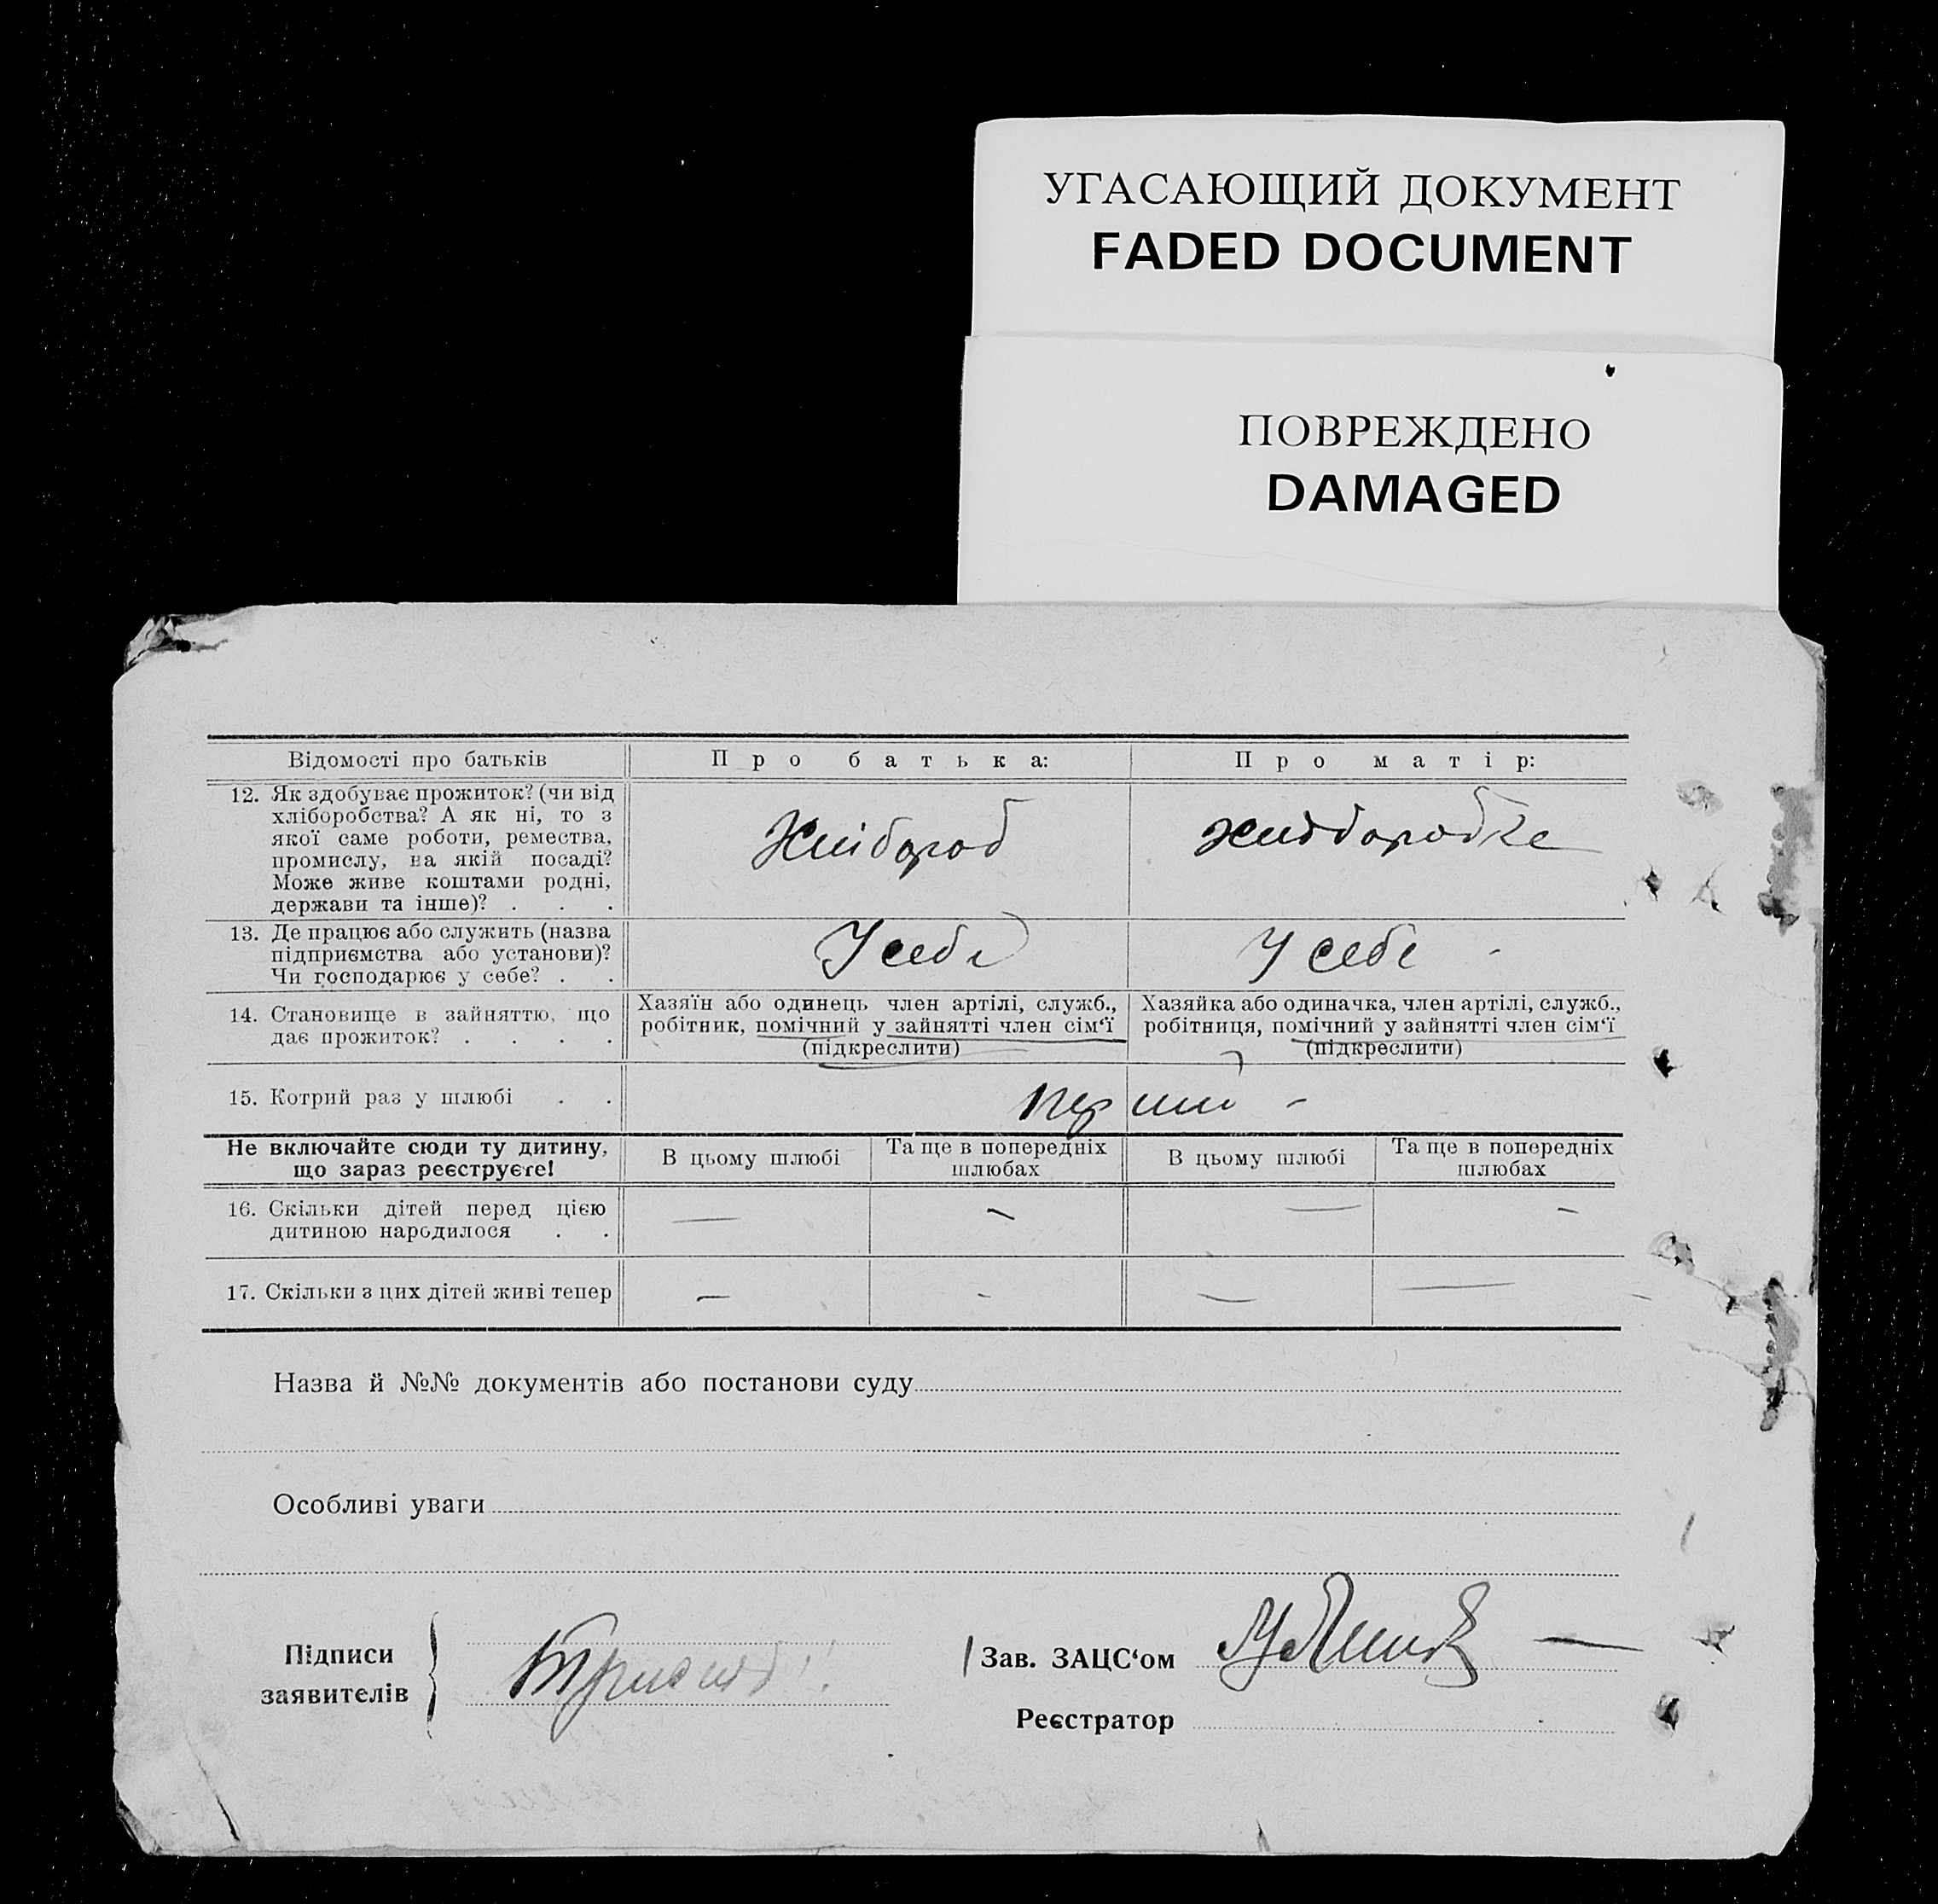 УГАСАЮЩИЙ ДОКУМЕНТ
FADED DOCUMENT
ПОВРЕЖДЕНО
DAMAGED
Відомості про батьків
Про батька:
Про матір:
12. Як здобуває прожиток? (чи від
хліборобства? А як ні, то з
якої саме роботи, ремества,
промислу, на якій посаді?
Може живе коштами родні,
держави та інше)? . . .
Хлібороб
хліборобка
13. Де працює або служить (назва
підприємства або установи)?
Чи господарює у себе? . .
У себе
У себе -
14. Становище в зайняттю, що
дає прожиток? . . . .
Хазяїн або одинець член артілі, служб.,
робітник, помічний у зайнятті член сім‘ї
(підкреслити)
Хазяйка або одиначка, член артілі, служб.,
робітниця, помічний у зайнятті член сім‘ї
(підкреслити)
15. Котрий раз у шлюбі . .
перший -
Не включайте сюди ту дитину,
що зараз реєструєте!
В цьому шлюбі
Та ще в попередніх
шлюбах
В цьому шлюбі
Та ще в попередніх
шлюбах
16. Скільки дітей перед цією
дитиною народилося . .
— — — -
17. Скільки з цих дітей живі тепер
— - — —
Назва й №№ документів або постанови суду
Особливі уваги
Підписи
заявителів
Зав. ЗАЦС‘ом
Реєстратор